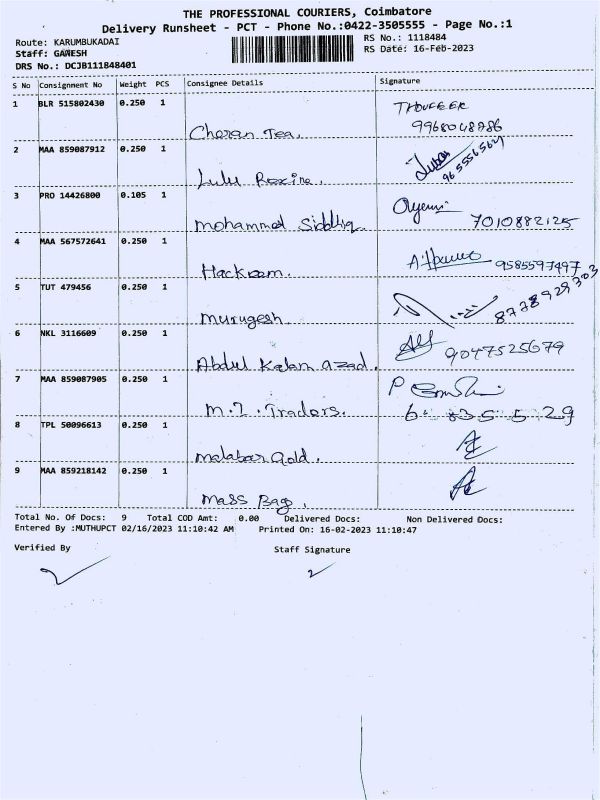 THE PROFESSIONAL COURIERS, Coimbatore
Delivery Runsheet - PCT - Phone No.:0422-3505555 - Page No.:1
Route: KARUMBUKADAI RS No.: 1118484
Staff: GANESH RS Date: 16-Feb-2023
DRS No.: DCJB111848401
S No Consignment No Weight PCS Consignee Details Signature
1 BLR 515802430 0.250 1 THOUFEER
Cheran Tea. 9968048786
2 MAA 859087912 0.250 1
Lulu
3 PRO 14426800 0.105 1
Mohammed Siddhiq 7010882125
4 MAA 567572641 0.250 1
Hackeem. 9585597497
5 TUT 479456 0.250 1 8778929303
Murugesh
6 NKL 3116609 0.250 1 9047525679
Abdul Kalam azad.
7 MAA 859087905 0.250 1
M.I. Traders.
8 TPL 50096613 0.250 1
malabar Gold.
9 MAA 859218142 0.250 1
Mass Bag.
Total No. Of Docs: 9 Total COD Amt: 0.00 Delivered Docs: Non Delivered Docs:
Entered By :MUTHUPCT 02/16/2023 11:10:42 AM Printed On: 16-02-2023 11:10:47
Verified By Staff Signature